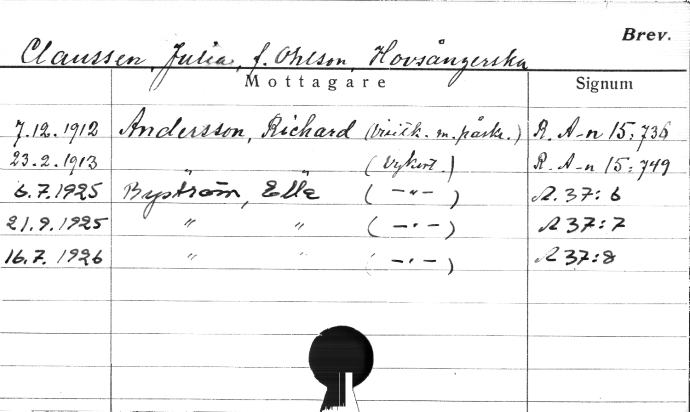 Brev.
Claussen, Julia, f. Ohlson, Hovsångerska
Mottagare Signum
7.12.1912 Andersson, Richard (visitk. m. påskr.) R. A-n 15: 736
23.2.1913 " " (vykort.) R. A-n 15: 749
6.7.1925 Byström, Elle (–"–) A. 37: 6
21.9.1925 " " (–"–) A 37: 7
16.7.1926 " " (–"–) A 37: 8